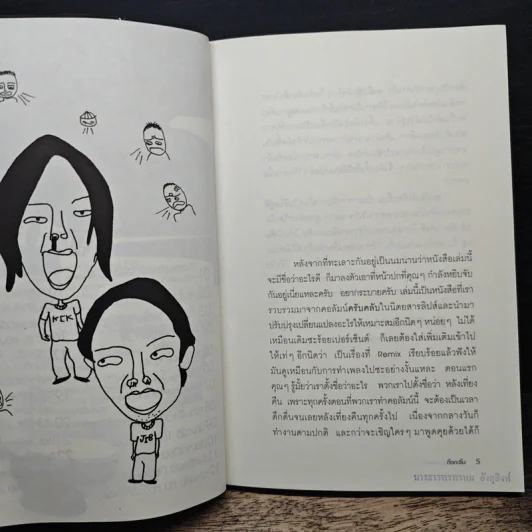 KCK
JEB
หลังจากที่ทะเลาะกันอยู่เป็นนมนานว่าหนังสือเล่มนี้
จะมีชื่อว่าอะไรดี ก็มาลงตัวเอาที่หน้าปกที่คุณๆ กำลังหยิบจับ
กันอยู่เนี่ยแหละครับ อยากระบายครับ เล่มนี้เป็นหนังสือที่เรา
รวบรวมมาจากคอลัมน์ครับกลับในนิตยสารลิปส์และนำมา
ปรับปรุงเปลี่ยนแปลงอะไรให้เหมาะสมอีกนิดๆ หน่อยๆ ไม่ได้
เหมือนเดิมซะร้อยเปอร์เซ็นต์ ก็เลยต้องใส่เพิ่มเติมเข้าไป
ให้เท่ๆ อีกนิดว่า เป็นเรื่องที่ Remix เรียบร้อยแล้วฟังให้
มันดูเหมือนกับการทำเพลงไปซะอย่างงั้นแหละ ตอนแรก
คุณๆ รู้มั้ยว่าเราตั้งชื่อว่าอะไร พวกเราไปตั้งชื่อว่า หลังเที่ยง
คืน เพราะทุกครั้งตอนที่พวกเราทำคอลัมน์นี้ จะต้องเป็นเวลา
ดึกดื่นจนเลยหลังเที่ยงคืนทุกครั้งไป เนื่องจากกลางวันก็
ทำงานตามปกติ และกว่าจะเชิญใครๆ มาพูดคุยด้วยได้ก็
5